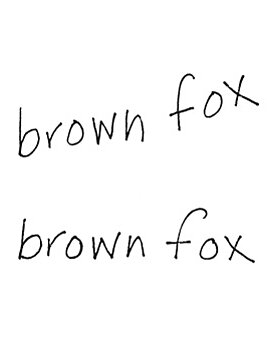 brown fox
brown fox